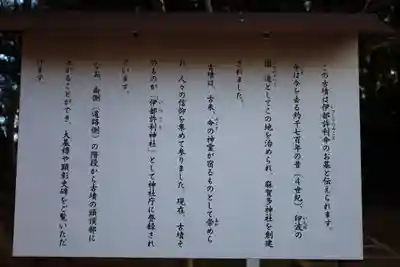 この古墳は伊都許利命のお墓と伝えられます。
命は今を去る約千七百年の昔（4世紀）、印波の
国造としてこの地を治められ、麻賀多神社を創建
されました。
古墳は、古来、命の神霊が宿るものとして崇めら
れ、人々の信仰を集めて参りました。現在、古墳そ
のものが「伊都許利神社」として神社庁に登録され
ています。
なお、南側（道路側）の階段から古墳の頭頂部に
上がることができ、大墓標や顕彰史碑をご覧いただ
けます。